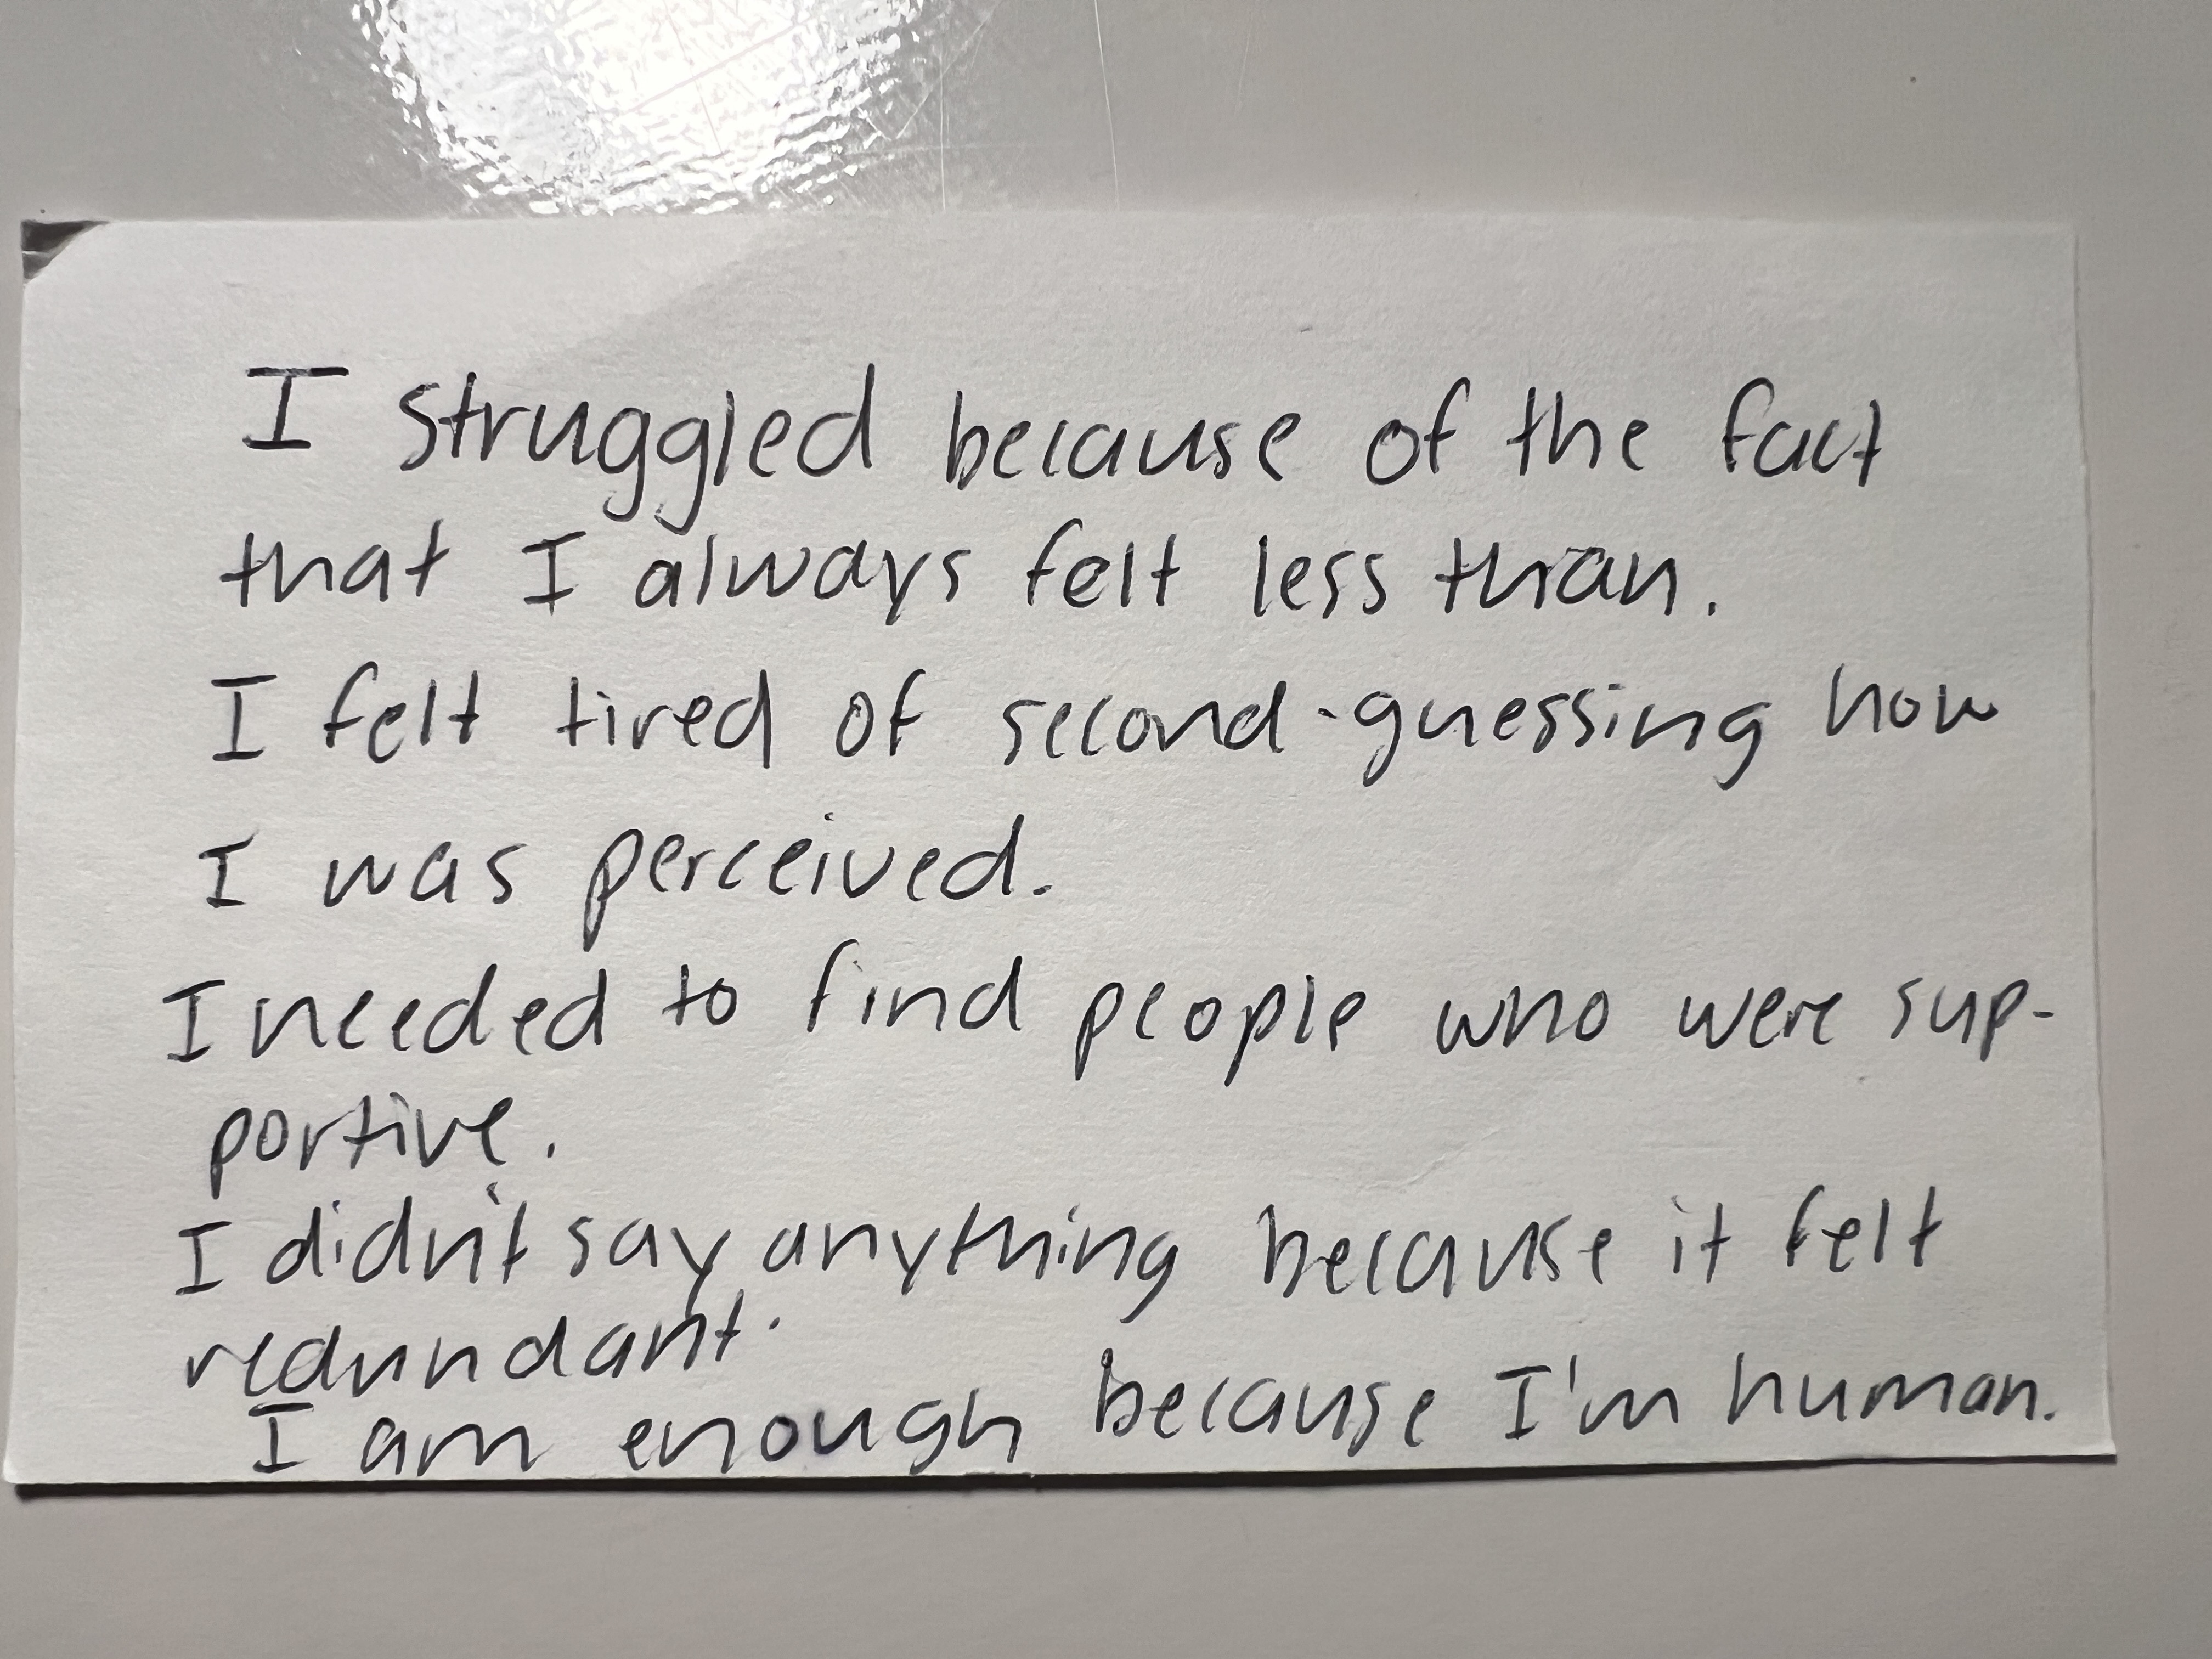 I struggled because of the fact
that I always felt less than.
I felt tired of second-guessing how
I was perceived.
I needed to find people who were sup-
portive.
I didn't say anything because it felt
redundant.
I am enough because I'm human.